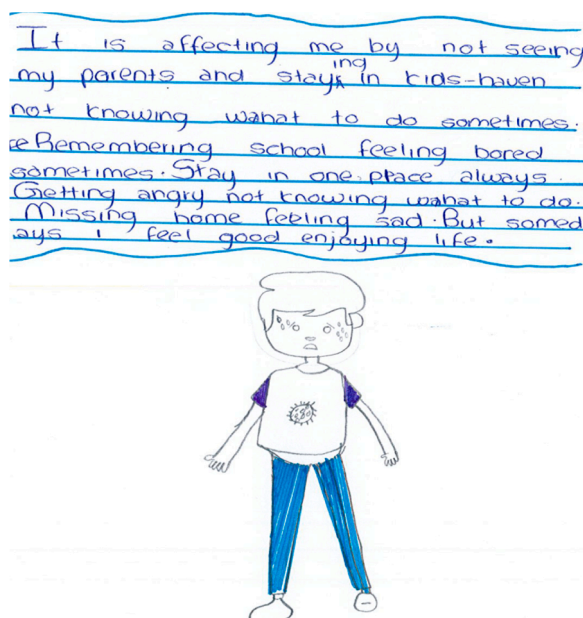 It is affecting me by not seeing
my parents and staying in kids-haven
not knowing wahat to do sometimes.
Remembering school feeling bored
sometimes. Stay in one place always.
Getting angry not knowing wahat to do.
Missing home feeling sad. But somed
ays i feel good enjoying life.